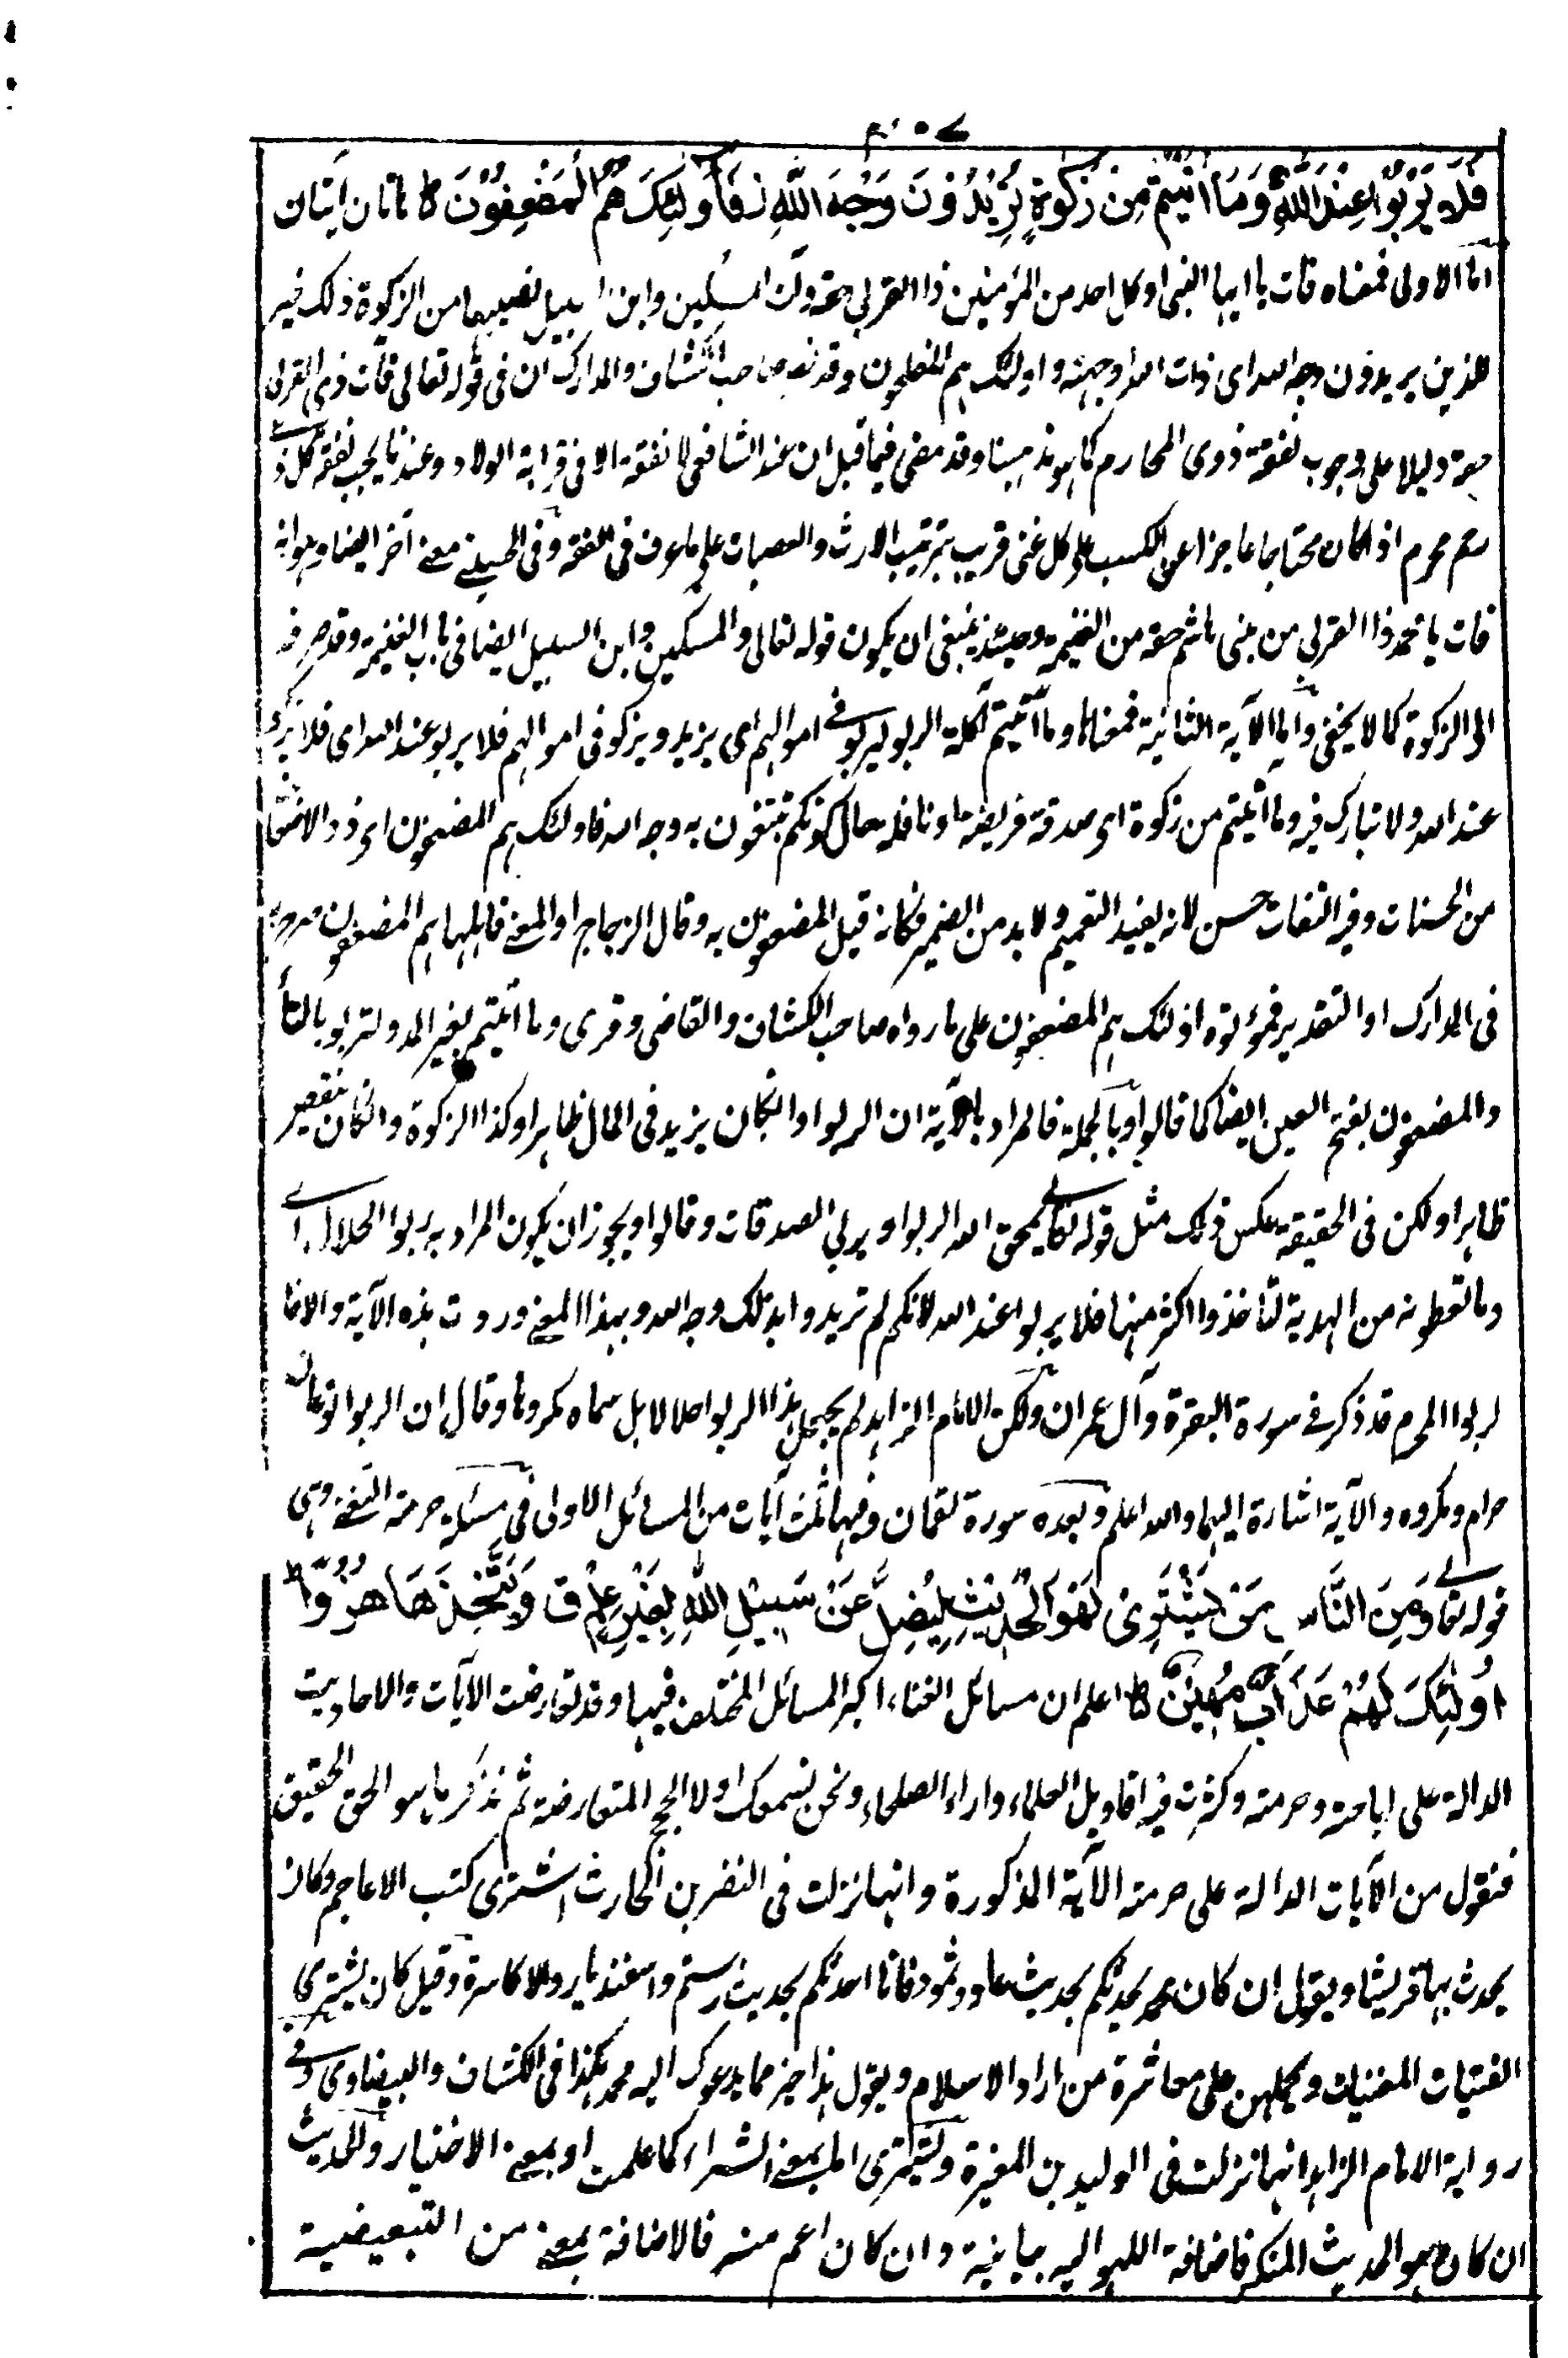 ٤٠٧
فَلَا يَرْبُوْا عِنْدَ اللّٰهِ وَمَا اٰتَيْتُمْ مِنْ زَكٰوةٍ تُرِيْدُوْنَ وَجْهَ اللّٰهِ فَاُولٰئِكَ هُمُ الْمُضْعِفُوْنَ هاتان آيتان
اما الاولى فمعناه فآت يا ايها النبى او كل احد من المؤمنين ذا القربى حقه وآت المسكين وابن السبيل نصيبهما من الزكوة ذلك خير
للذين يريدون وجه الله اى ذات الله او جهته واولئك هم المفلحون وقد نص صاحب الكشاف والمدارك ان فى قوله تعالى فآت ذى القربى
حقه دليلا على وجوب نفقة ذوى المحارم كما هو مذهبنا وقد مضى فيما قبل ان عند الشافعى لا نفقة الا فى قرابة الولاد وعندنا يجب نفقة كل ذى
رحم محرم اذا كان محتاجا عاجزا عن الكسب على كل غنى قريب بترتيب الارث والعصبات على ما عرف فى الفقه وفى الحسينى معنى آخر ايضا وهو انه
فآت يا محمد ذا القربى من بنى هاشم حقه من الغنيمة وحينئذ ينبغى ان يكون قوله تعالى والمسكين وابن السبيل ايضا فى باب الغنيمة وقد صرفه
الى الزكوة كما لا يخفى واما الآية الثانية فمعناها وما آتيتم اكلة الربوا ليربو فى اموالهم اى يزيد ويزكو فى اموالهم فلا يربو عند الله اى فلا يزكو
عند الله ولا تبارك فيه وما آتيتم من زكوة اى صدقة فريضة او نافلة حال كونكم تبتغون به وجه الله فاولئك هم المضعفون اى ذوو الاضعاف
من الحسنات وفيه التفات حسن لانه يفيد التعميم ولا بد من الضمير فكانه قيل المضعفون به وقال الزجاج او المعنى فاهلها هم المضعفون صرح به
فى المدارك او التقدير فمؤتوه اولئك هم المضعفون على ما رواه صاحب الكشاف والقاضى وقرئ وما اتيتم بغير المد ولتربو بالتاء
والمضعفون بفتح العين ايضا كما قالوا وبالجملة فالمراد بالآية ان الربوا وان كان يزيد فى المال ظاهرا وكذا الزكوة وان كان تنقصه
ظاهرا ولكن فى الحقيقة عكس ذلك مثل قوله تعالى يمحق الله الربوا ويربى الصدقات وقالوا ويجوز ان يكون المراد به ربوا الحلال اى
وما تعطونه من الهدية لتأخذوا اكثر منها فلا يربوا عند الله لانكم لم تريدوا بذلك وجه الله وبهذا المعنى وردت هذه الآية والا فا
لربوا المحرم قد ذكر فى سورة البقرة وآل عمران ولكن الامام الزاهد لم يجعل هذا الربوا حلالا بل سماه مكروها وقال ان الربوا نوعان
حرام ومكروه والآية اشارة اليهما والله اعلم وبعده سورة لقمان وفيها ثلث آيات من المسائل الاولى فى مسئلة حرمة التغنى وهى
قوله تعالى وَمِنَ النَّاسِ مَنْ يَشْتَرِىْ لَهْوَ الْحَدِيْثِ لِيُضِلَّ عَنْ سَبِيْلِ اللّٰهِ بِغَيْرِ عِلْمٍ ق وَيَتَّخِذَهَا هُزُوًا ط
اُولٰئِكَ لَهُمْ عَذَابٌ مُهِيْنٌ اعلم ان مسائل الغناء اكبر المسائل المختلف فيها وقد تعارضت الآيات والاحاديث
الدالة على اباحته وحرمته وكثرت فيه اقاويل العلماء واراء الصلحاء ونحن نسمعك اولا الحجج المتعارضة ثم نذكر ما هو الحق الحقيق
فنقول من الآيات الدالة على حرمته الآية المذكورة وانها نزلت فى النضر بن الحارث اشترى كتب الاعاجم وكان
يحدث بها قريشا ويقول ان كان محمد يحدثكم بحديث عاد وثمود فانا احدثكم بحديث رستم واسفنديار والاكاسرة وقيل كان يشترى
الفتيات المغنيات ويحملهن على معاشرة من اراد الاسلام ويقول هذا خير مما يدعوك اليه محمد هكذا فى الكشاف والبيضاوى وفى
رواية الامام الزاهد انها نزلت فى الوليد بن المغيرة ويشترى اما بمعنى الشراء كما علمت او بمعنى الاختيار والحديث
ان كان هو الحديث المنكر فاضافة اللهو اليه بيانية وان كان اعم منه فالاضافة بمعنى من التبعيضية